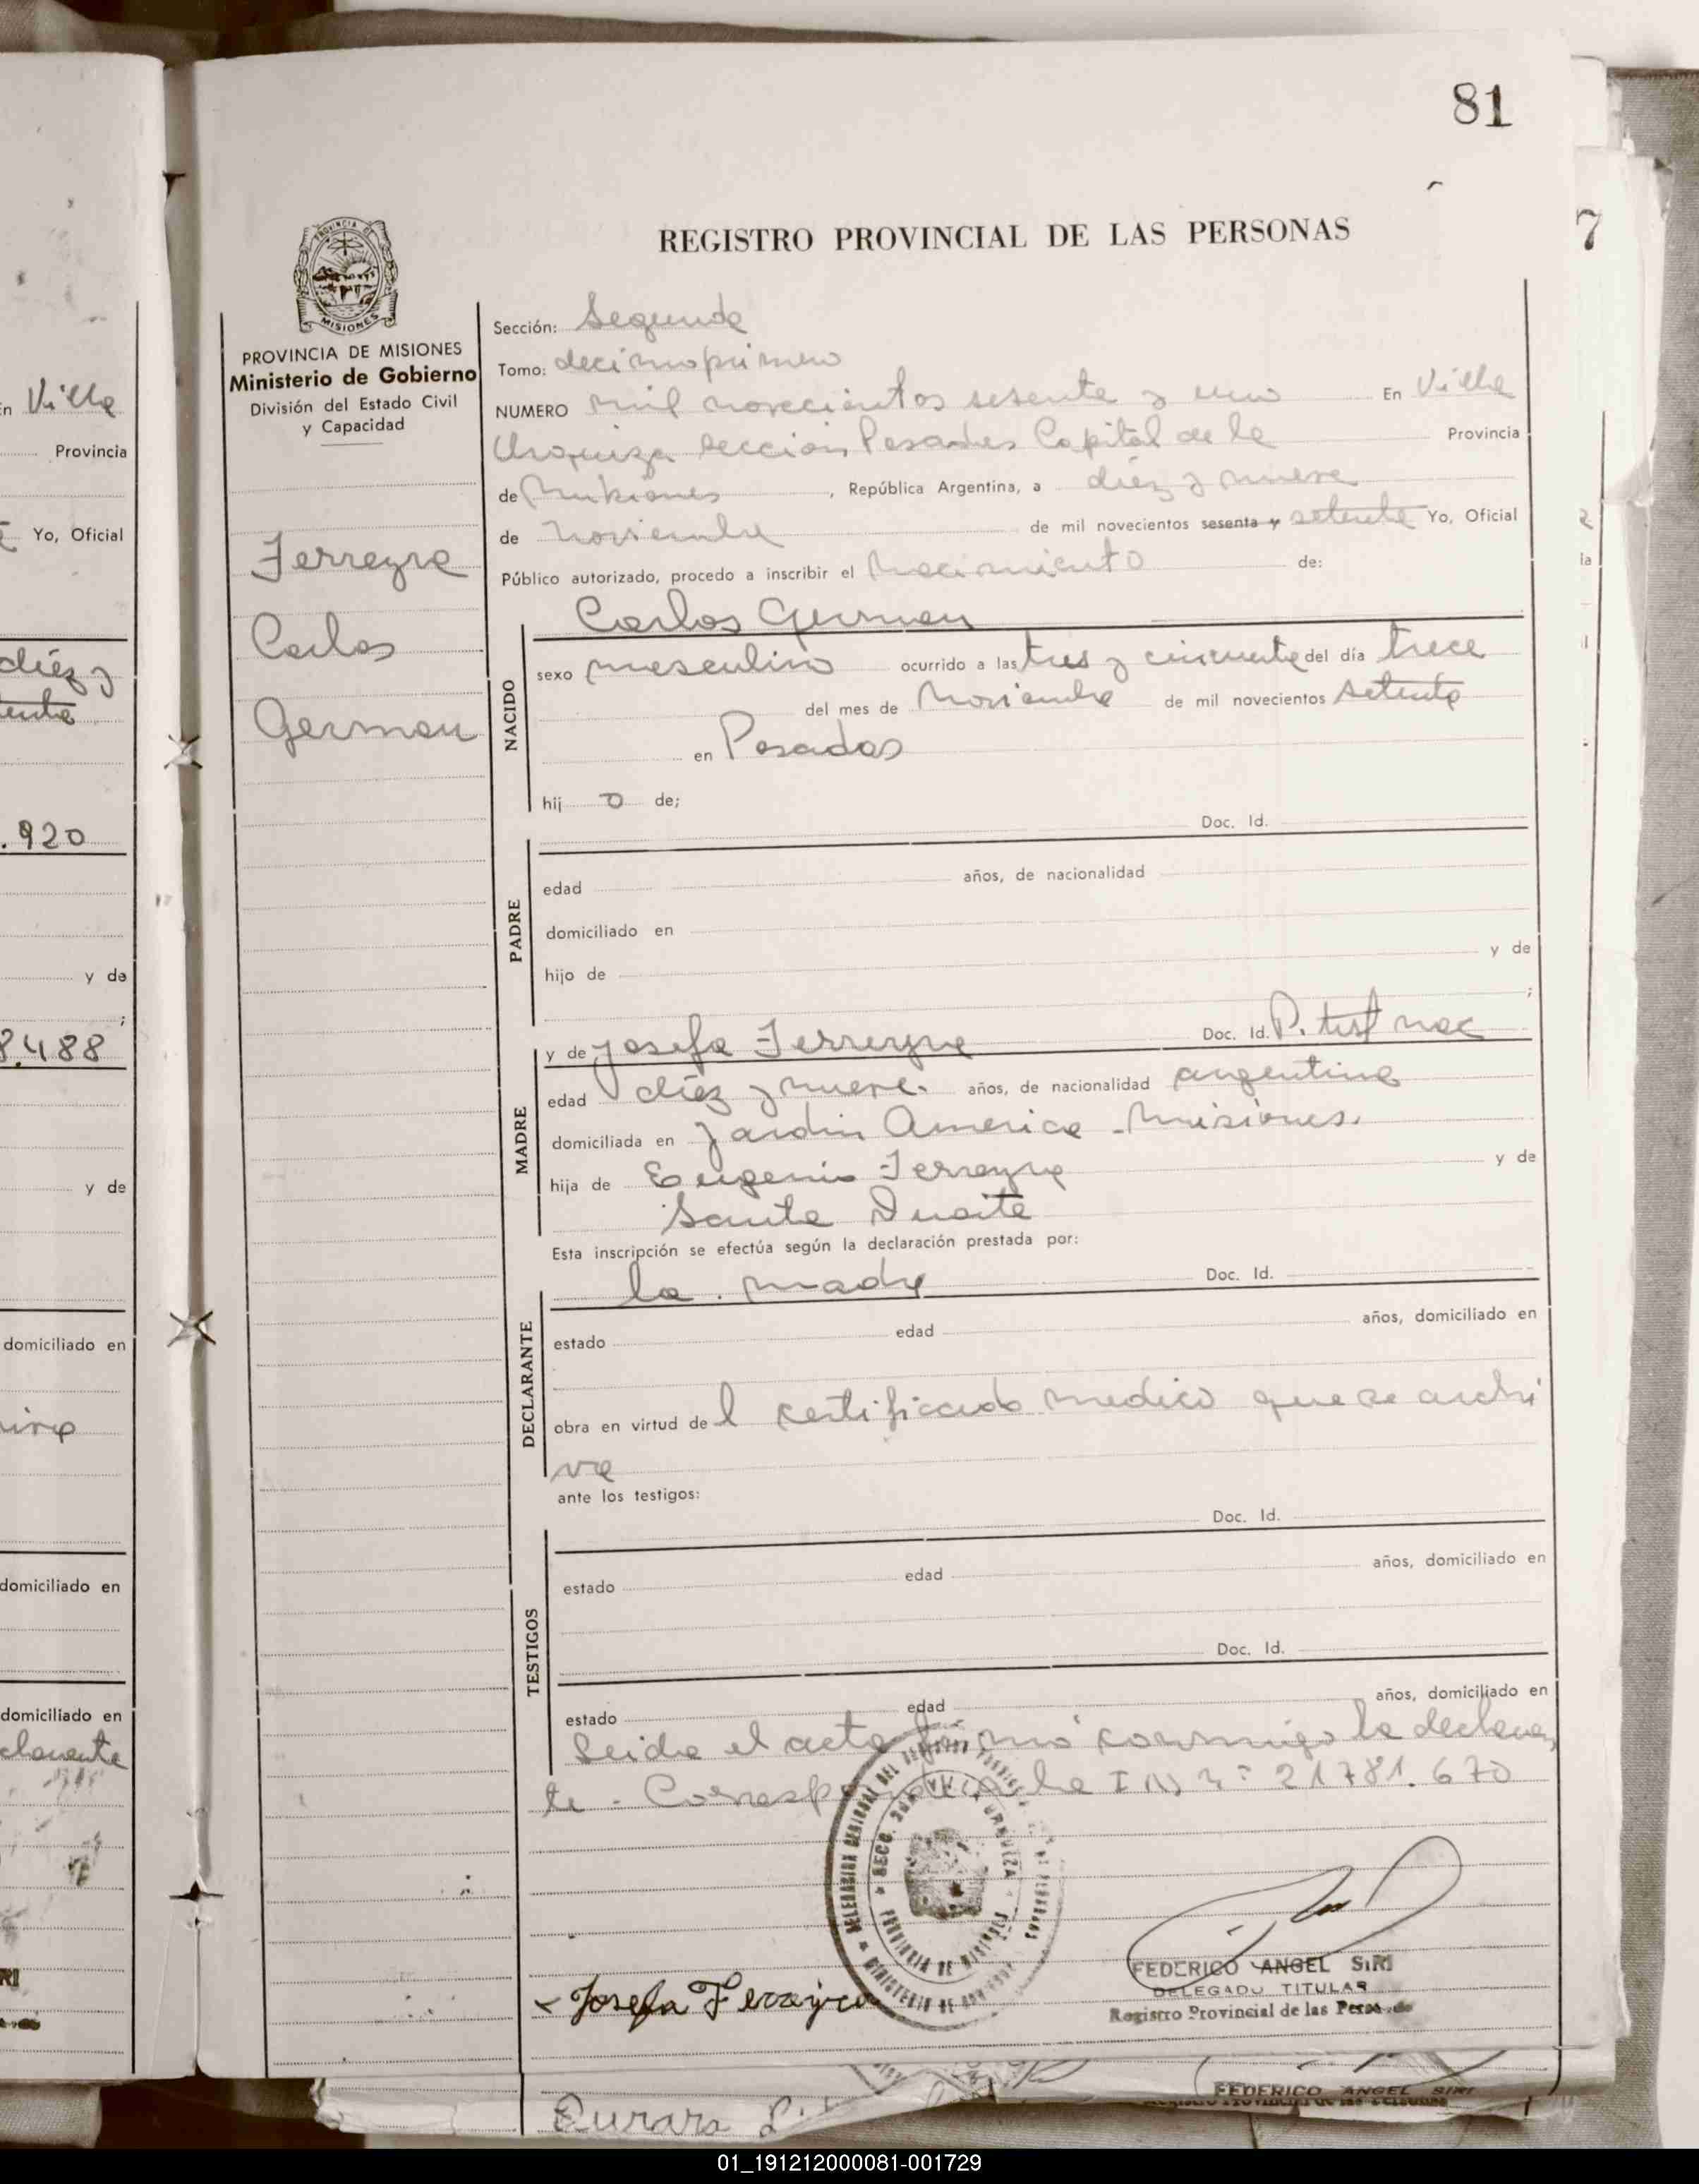 81
7
REGISTRO PROVINCIAL DE LAS PERSONAS
PROVINCIA DE MISIONES
Ministerio de Gobierno
División del Estado Civil
y Capacidad
Ferreyra
Carlos
German
Sección: Segunda
Tomo: decimoprimero
NUMERO mil novecientos sesenta y uno En Villa
Urquiza seccion Posadas Capital de la Provincia
de Misiones, República Argentina, a diez y nueve
de noviembre de mil novecientos sesenta y setenta Yo, Oficial
Público autorizado, procedo a inscribir el nacimiento de:
Carlos German
NACIDO
sexo masculino ocurrido a las tres y cincuenta del día trece
del mes de noviembre de mil novecientos setenta
en Posadas
hij o de;
Doc. Id.
PADRE
edad años, de nacionalidad
domiciliado en
hijo de y de
;
MADRE
y de Josefa Ferreyra Doc. Id. P. tist nac
edad diez y nueve. años, de nacionalidad argentina
domiciliada en Jardin America - Misiones.
hija de Eugenio Ferreyra y de
Santa Duarte
Esta inscripción se efectúa según la declaración prestada por:
la madre Doc. Id.
DECLARANTE
estado edad años, domiciliado en
obra en virtud de l certificado medico que se archi
va
ante los testigos:
Doc. Id.
TESTIGOS
estado edad años, domiciliado en
Doc. Id.
estado edad años, domiciliado en
Leida el acta firmó conmigo la declaran
te - Corresponde la I N nº 21781.670
Josefa Ferreyra
FEDERICO ANGEL SIRI
DELEGADO TITULAR
Registro Provincial de las Personas
FEDERICO ANGEL SIRI
En Villa
Provincia
Yo, Oficial
diez y
.920
y de
8.488
y de
domiciliado en
domiciliado en
domiciliado en
01_191212000081-001729